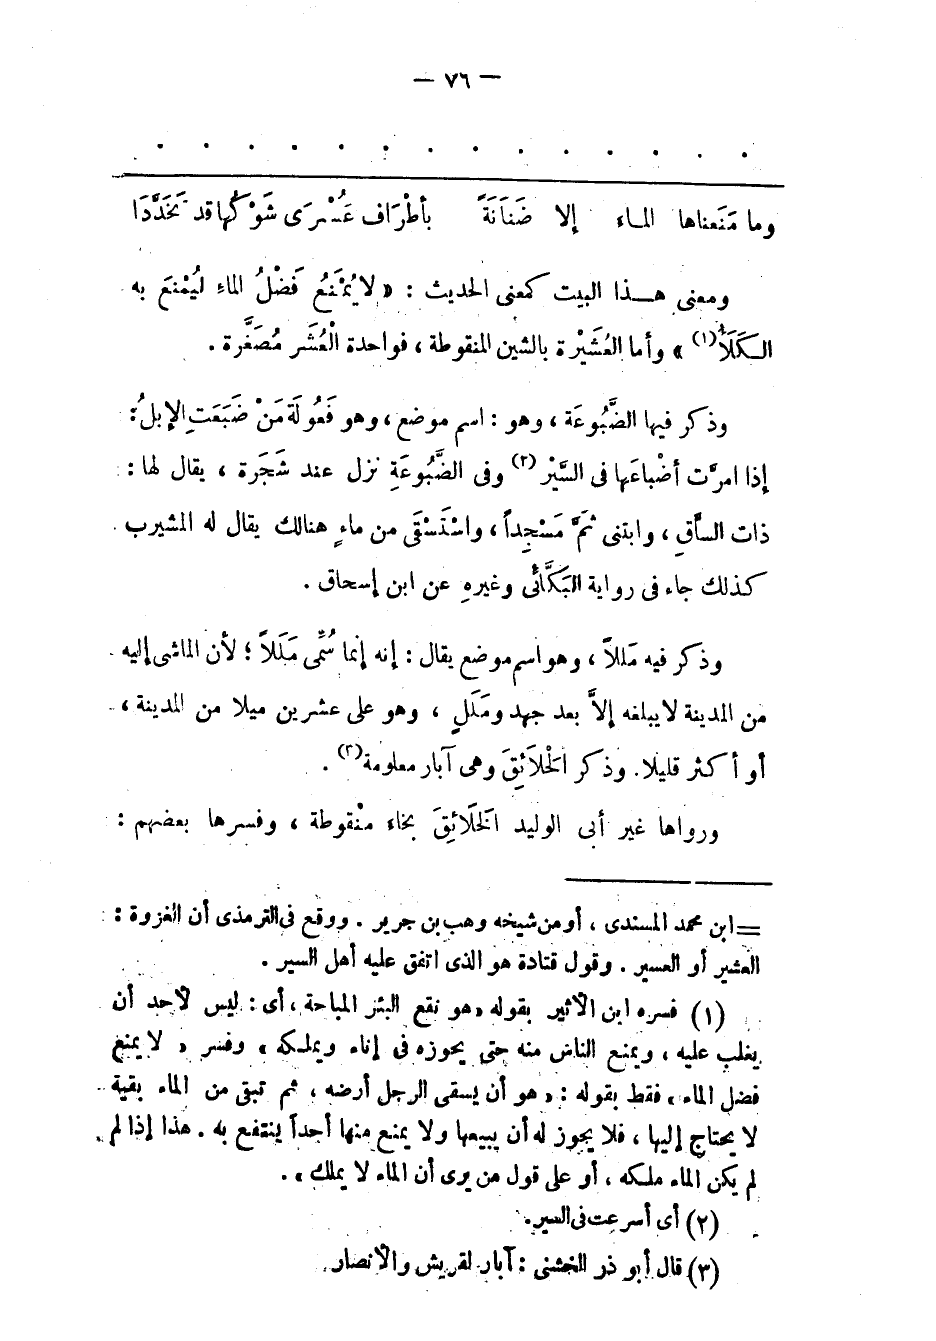 — ٧٦ —
. . . . . . . . . . . . . .
وما مَنَعناها المـاء إلا ضَنَانَةً بأطْرَاف عَسْرَى شَوْكُها قد تَخَدَّدَا
ومعنى هــذا البيت كمعنى الحديث : « لا يُمْنَعُ فَضْلُ الماءِ ليُمْنَعَ به
الـكَلَأُ(١) » وأما العُشَيْرة بالشين المنقوطة ، فواحدة الْعُشَر مُصَغَّرة .
وذكر فيها الضَّبُوعَة ، وهو : اسم موضع ، وهو فَعُولَة مَنْ ضَبَعَت الإبلُ :
إذا امرَّت أضْباعَها فى السَّيْر(٢) وفى الضَّبُوعَةِ نزل عند شَجَرة ، يقال لها :
ذات السَّاقِ ، وابتنى ثَمَّ مَسْجِداً ، واسْتَسْقَى من ماءٍ هنالك يقال له المشيرب .
كذلك جاء فى رواية البَكَّائى وغيرهِ عن ابن إسحاق .
وذكر فيه مَللاً ، وهو اسم موضع يقال : إنه إنما سُمِّى مَلَلاً ؛ لأن الماشى إليه
من المدينة لا يبلغه إلاَّ بعد جهد ومَلَلٍ ، وهو على عشرين ميلا من المدينة ،
أو أكثر قليلا. وذكر الخلَائِقَ وهى آبار معلومة(٣) .
ورواها غير أبى الوليد الخَلَائِقَ بخاء منْقوطة ، وفسرها بعضهم :
= ابن محمد المسندى ، أو من شيخه وهب بن جرير . ووقع فى الترمذى أن الغزوة :
العشير أو العسير . وقول قتادة هو الذى اتفق عليه أهل السير .
(١) فسره ابن الأثير بقوله « هو نقع البئر المباحة ، أى : ليس لأحد أن
يغلب عليه ، ويمنع الناس منه حتى يحوزه فى إناء ويملـكه » وفسر « لا يمنع
فضل الماء » فقط بقوله : « هو أن يسقى الرجل أرضه ، ثم تبقى من الماء بقية
لا يحتاج إليها ، فلا يجوز له أن يبيعها ولا يمنع منها أحداً ينتفع به . هذا إذا لم
لم يكن الماء ملـكه ، أو على قول من يرى أن الماء لا يملك » .
(٢) أى أسرعت فى السير.
(٣) قال أبو ذر الخشنى : آبار لقريش والأنصار.